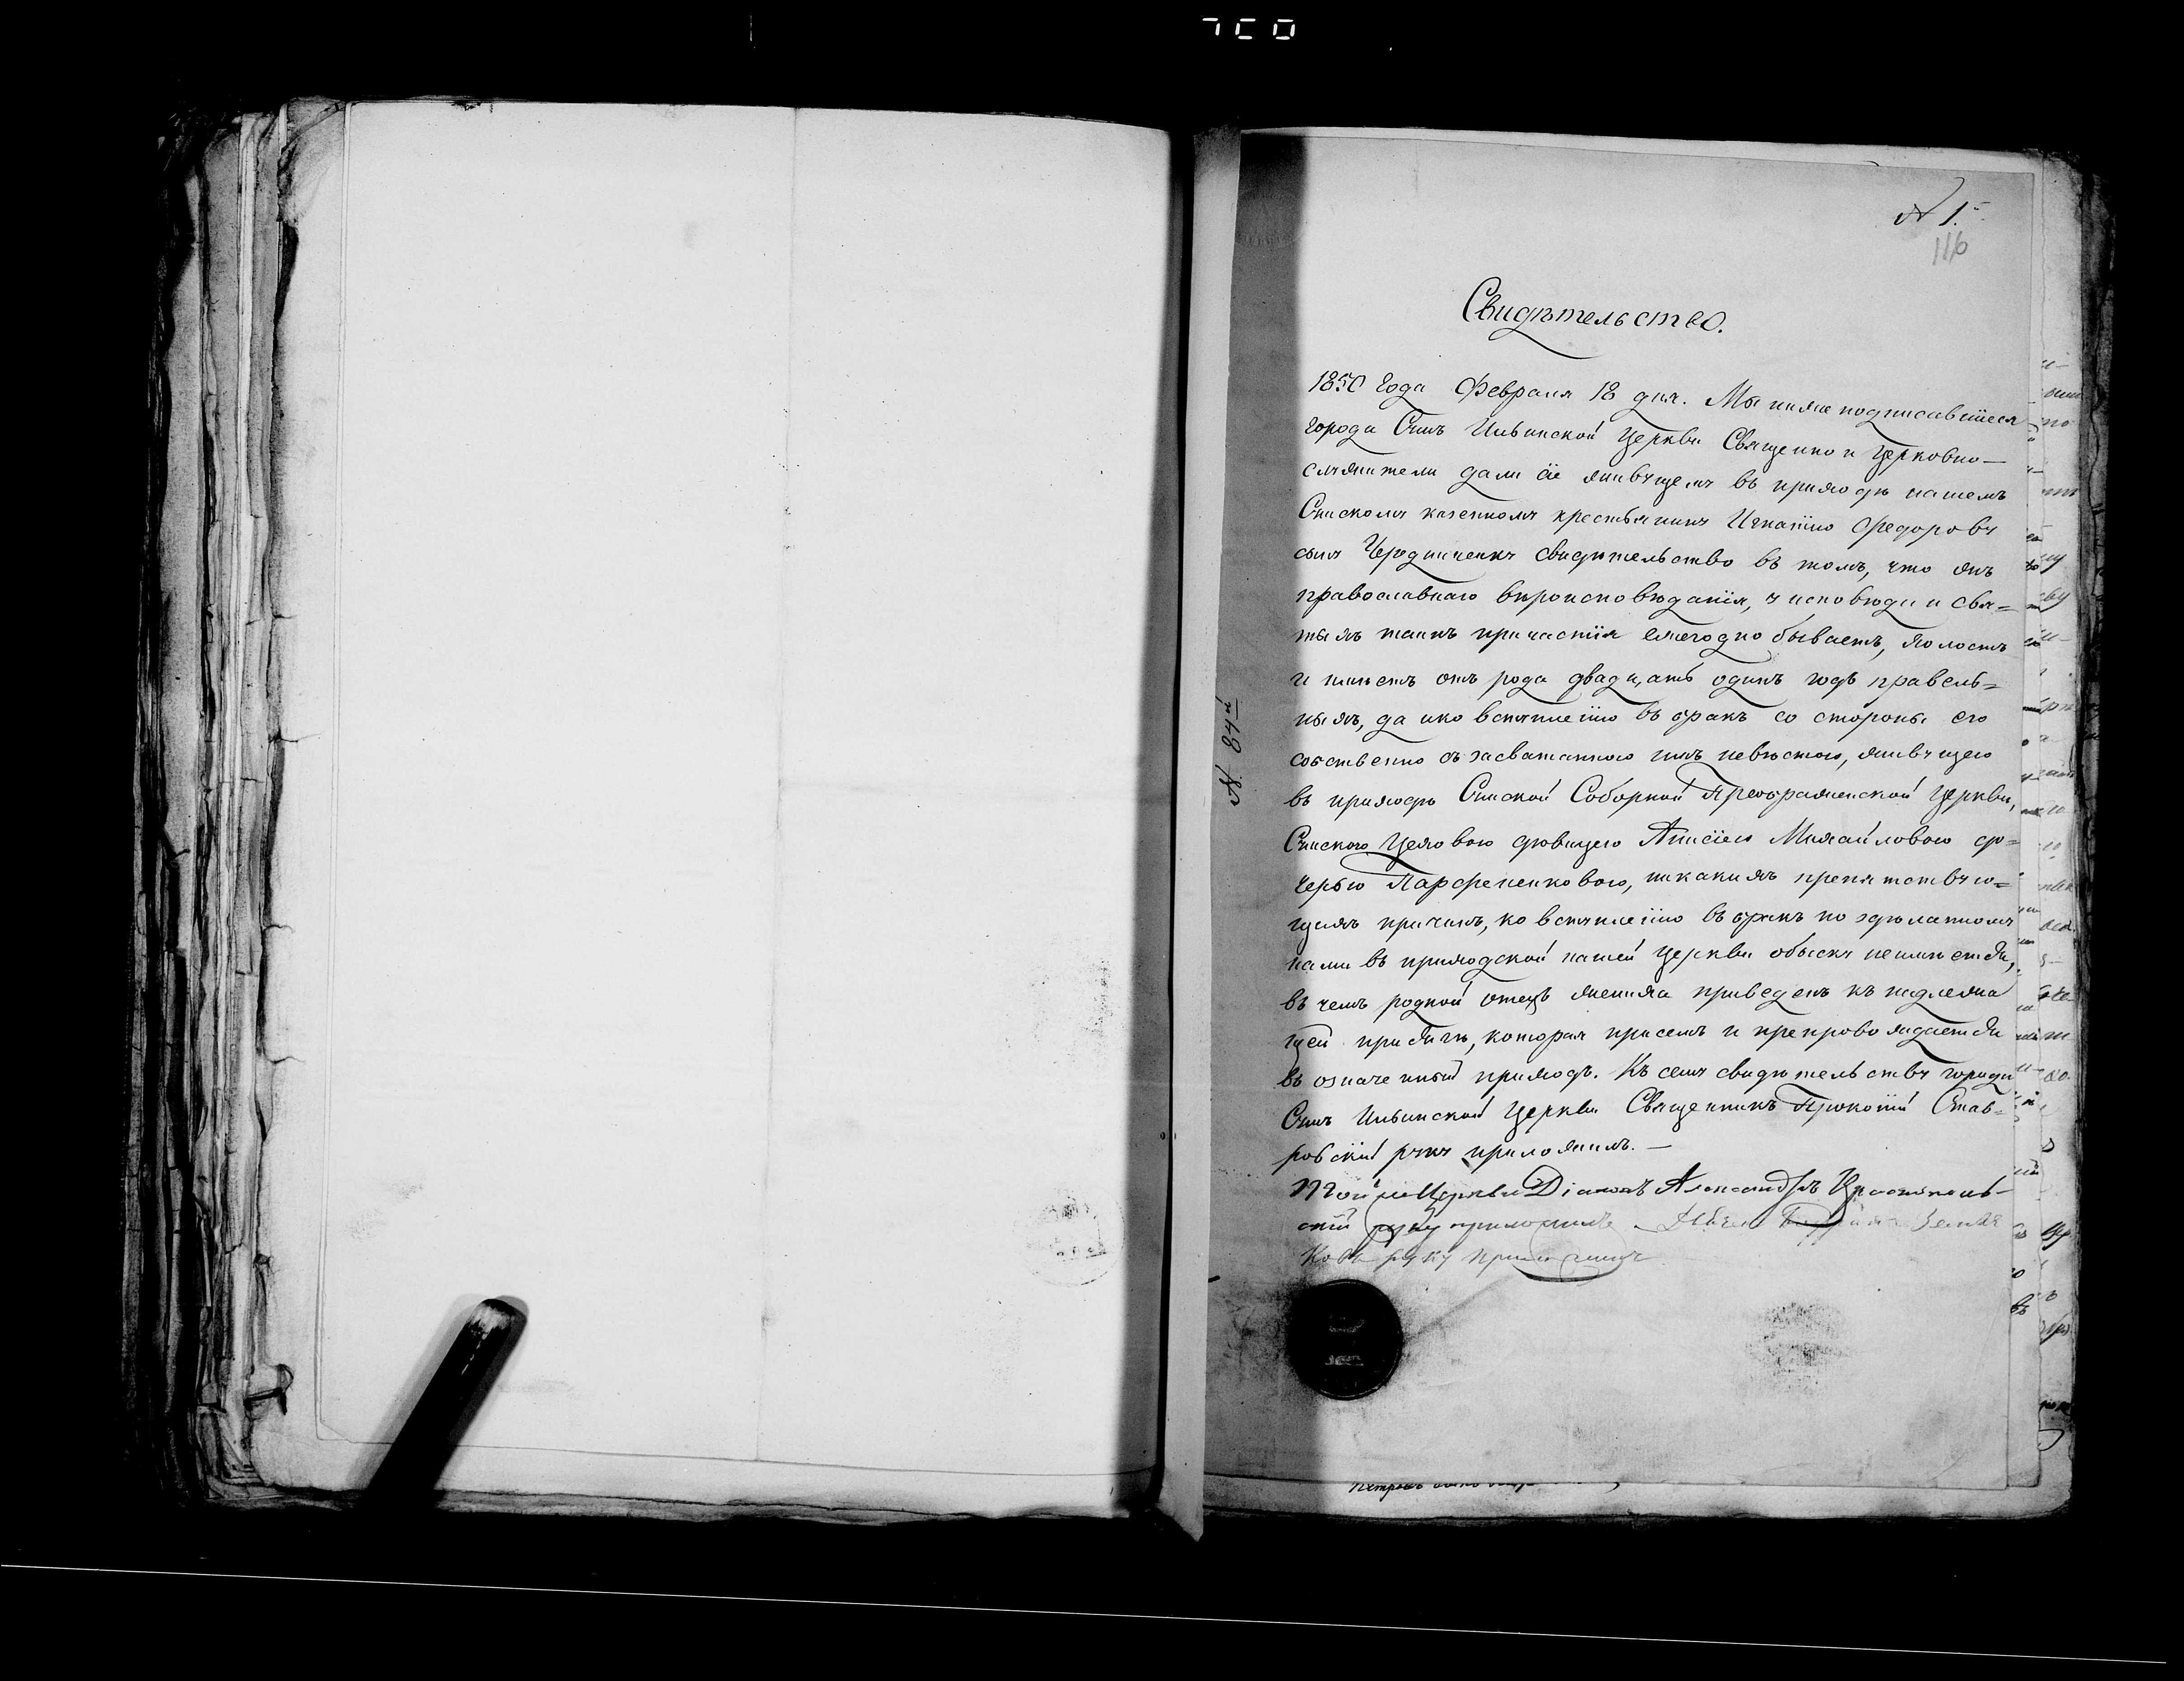 № 1.
116
Свидѣтельство.
1850 года Февраля 18 дня. Мы ниже подписавшіеся
города Сумъ Ильинской Церкви Священно и Церковно-
служители дали сіе живущему въ приходѣ нашемъ
Сумскому казенному крестьянину Игнатію Федорову
сыну Чередниченку свидѣтельство въ томъ, что онъ
православнаго вѣроисповѣданія, у исповѣди и свя=
тыхъ таинъ причастія ежегодно бываетъ, холостъ
и имѣетъ отъ рода двадцать одинъ годъ
да ико вступленію въ бракъ со стороны его
собственно съ засватанною имъ невѣстою, живущею
въ приходѣ Сумской Соборной Преображенской Церкви,
Сумскою Цеховою дѣвицею Анисіею Михайловою до=
черью Парфененковою, никакихъ препятствую=
щихъ причинъ, ко вступленію въ бракъ по здѣланному
нами въ приходской нашей Церкви обыску неимѣется,
въ чемъ родной отецъ жениха приведенъ къ надлежа
щей присягѣ, которая присемъ и препровождается
въ означенный приходъ. Къ сему свидѣтельству города
Сумъ Ильинской Церкви Священникъ Прокопій Став=
ровскій руку приложилъ.—
Той же Церкви Діаконъ Александръ
руку приложилъ
руку приложилъ
№ 84й